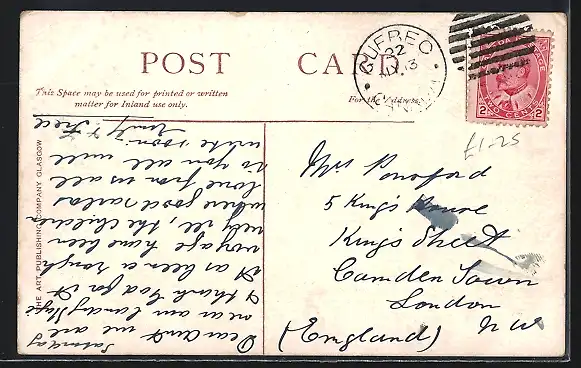 POST CARD
This Space may be used for printed or written
matter for Inland use only.
For the Address
QUEBEC
22
3
CANADA
TWO CENTS
2 2
£1-25
THE ART PUBLISHING COMPANY GLASGOW
Mrs Ponsford
5 King's House
King's Street
Camden Town
London
N W
(England)
Saturday
Dear Aunt we are
near our landing Stage
& thank God for it
it as been a rough
voyage have been
very ill, the children
where good saliors
love from us all
to you all will
write soon
Emily & Fred